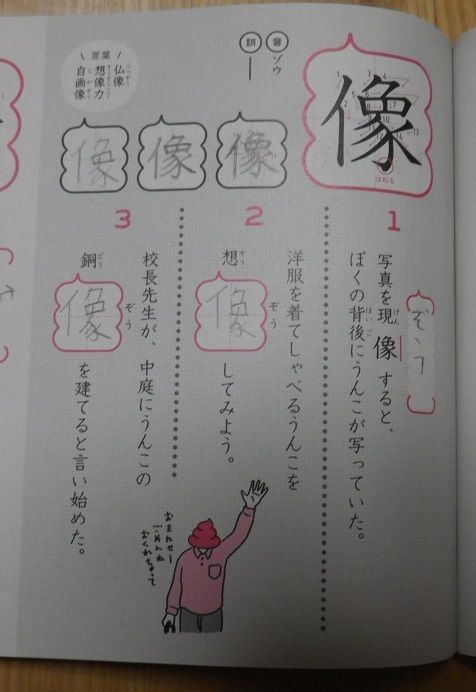 像
はねる
音 ゾウ
訓 ―
言葉
仏像
想像力
自画像
像
像
像
1
写真を現像すると、
ぼくの背後にうんこが写っていた。
ぞう
2
洋服を着てしゃべるうんこを
想像してみよう。
3
校長先生が、中庭にうんこの
銅像を建てると言い始めた。
おまたせー
ごめんね
おくれちゃって